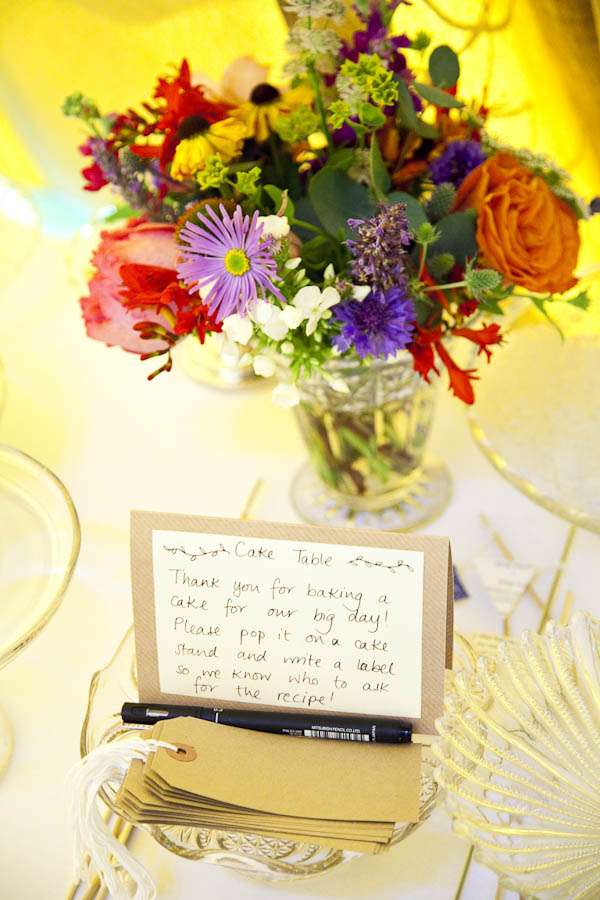 Cake Table
Thank you for baking a
cake for our big day!
Please pop it on a cake
stand and write a label
so we know who to ask
for the recipe!
MITSUBISHI PENCIL CO.,LTD